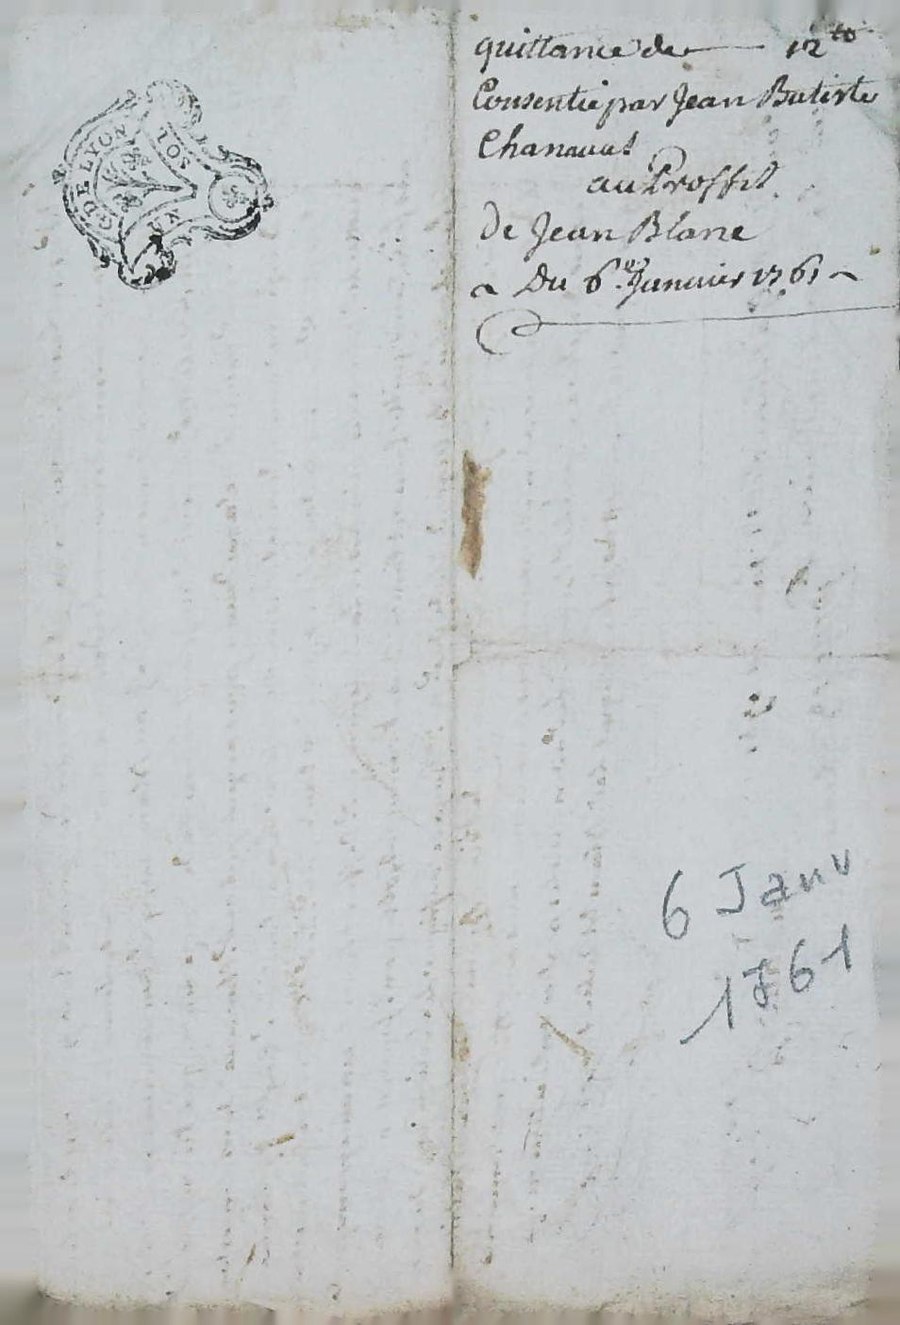 G DE LYON
SOL
quittance de 12 tt
Consentie par Jean Batiste
Chanauat
au Proffit
De Jean Blanc
Du 6e Janvier 1761
6 Janv
1761